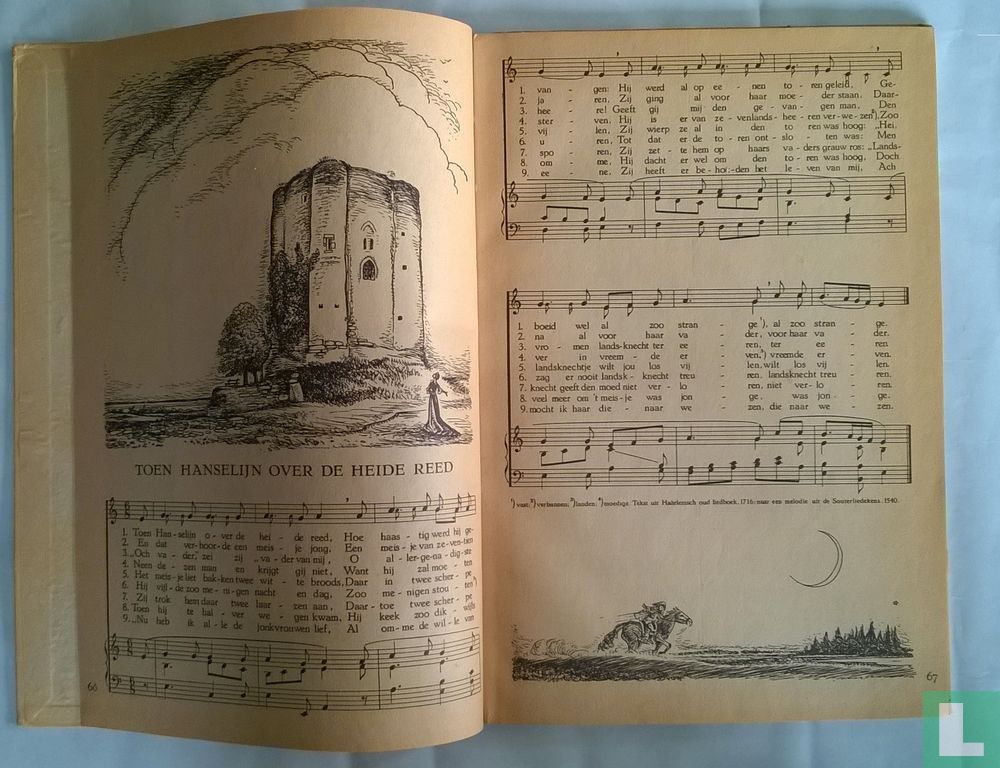 TOEN HANSELIJN OVER DE HEIDE REED
1. Toen Han - selijn o - ver de hei - de reed, Hoe haas - tig werd hij ge-
2. En dat ver - hoor - de een meis - je jong, Een meis - je van ze - ven - tien
3. „Och va - der," zei zij „va - der van mij, O al - ler - ge - na - dig - ste
4. Neen de - zen man en krijgt gij niet, Want hij zal moe - ten
5. Het meis - je liet bak - ken twee wit - te broods, Daar in twee scher - pe
6. Hij vijl - de zoo me - ni - gen nacht en dag, Zoo me - nigen stou - ten⁴)
7. Zij trok hem daar twee laar - zen aan, Daar - toe twee scher - pe
8. Toen hij te hal - ver we - gen kwam, Hij keek zoo dik - wijls
9. „Nu heb ik al - le de jonkvrouwen lief, Al om - me de wil - le van
66
1. van - gen: Hij werd al op ee - nen to - ren geleid, Ge-
2. ja - ren, Zij ging al voor haar moe - der staan. Daar-
3. hee - re! Geeft gij mij den ge - van - gen man, Den
4. ster - ven, Hij is er van ze - venlands - hee - ren ver - we - zen²), Zoo
5. vij - len, Zij wierp ze al in den to - ren was hoog: „Hei,
6. u - ren, Tot dat er de to - ren ont - slo - ten was: Men
7. spo - ren, Zij zet - te hem op haars va - ders grauw ros: „Lands-
8. om - me, Hij dacht er wel om den to - ren was hoog, Doch
9. ee - ne, Zij heeft er be - hou - den het le - ven van mij, Ach
1. boeid wel al zoo stran - ge¹), al zoo stran - ge.
2. na al voor haar va - der, voor haar va - der.
3. vro - men lands - knecht ter ee - ren, ter ee - ren.
4. ver in vreem - de er - ven,³) vreemde er - ven.
5. landsknechtje wilt jou los vij - len, wilt los vij - len.
6. zag er nooit landsk - knecht treu - ren, landsknecht treu - ren.
7. knecht geeft den moed niet ver - lo - ren, niet ver - lo - ren.
8. veel meer om 't meis - je was jon - ge, was jon - ge.
9. mocht ik haar die - naar we - zen, die naar we - zen.
¹) vast; ²) verbannen; ³) landen; ⁴) moedige. Tekst uit Haarlemsch oud liedboek, 1716; naar een melodie uit de Souterliedekens, 1540.
67
L